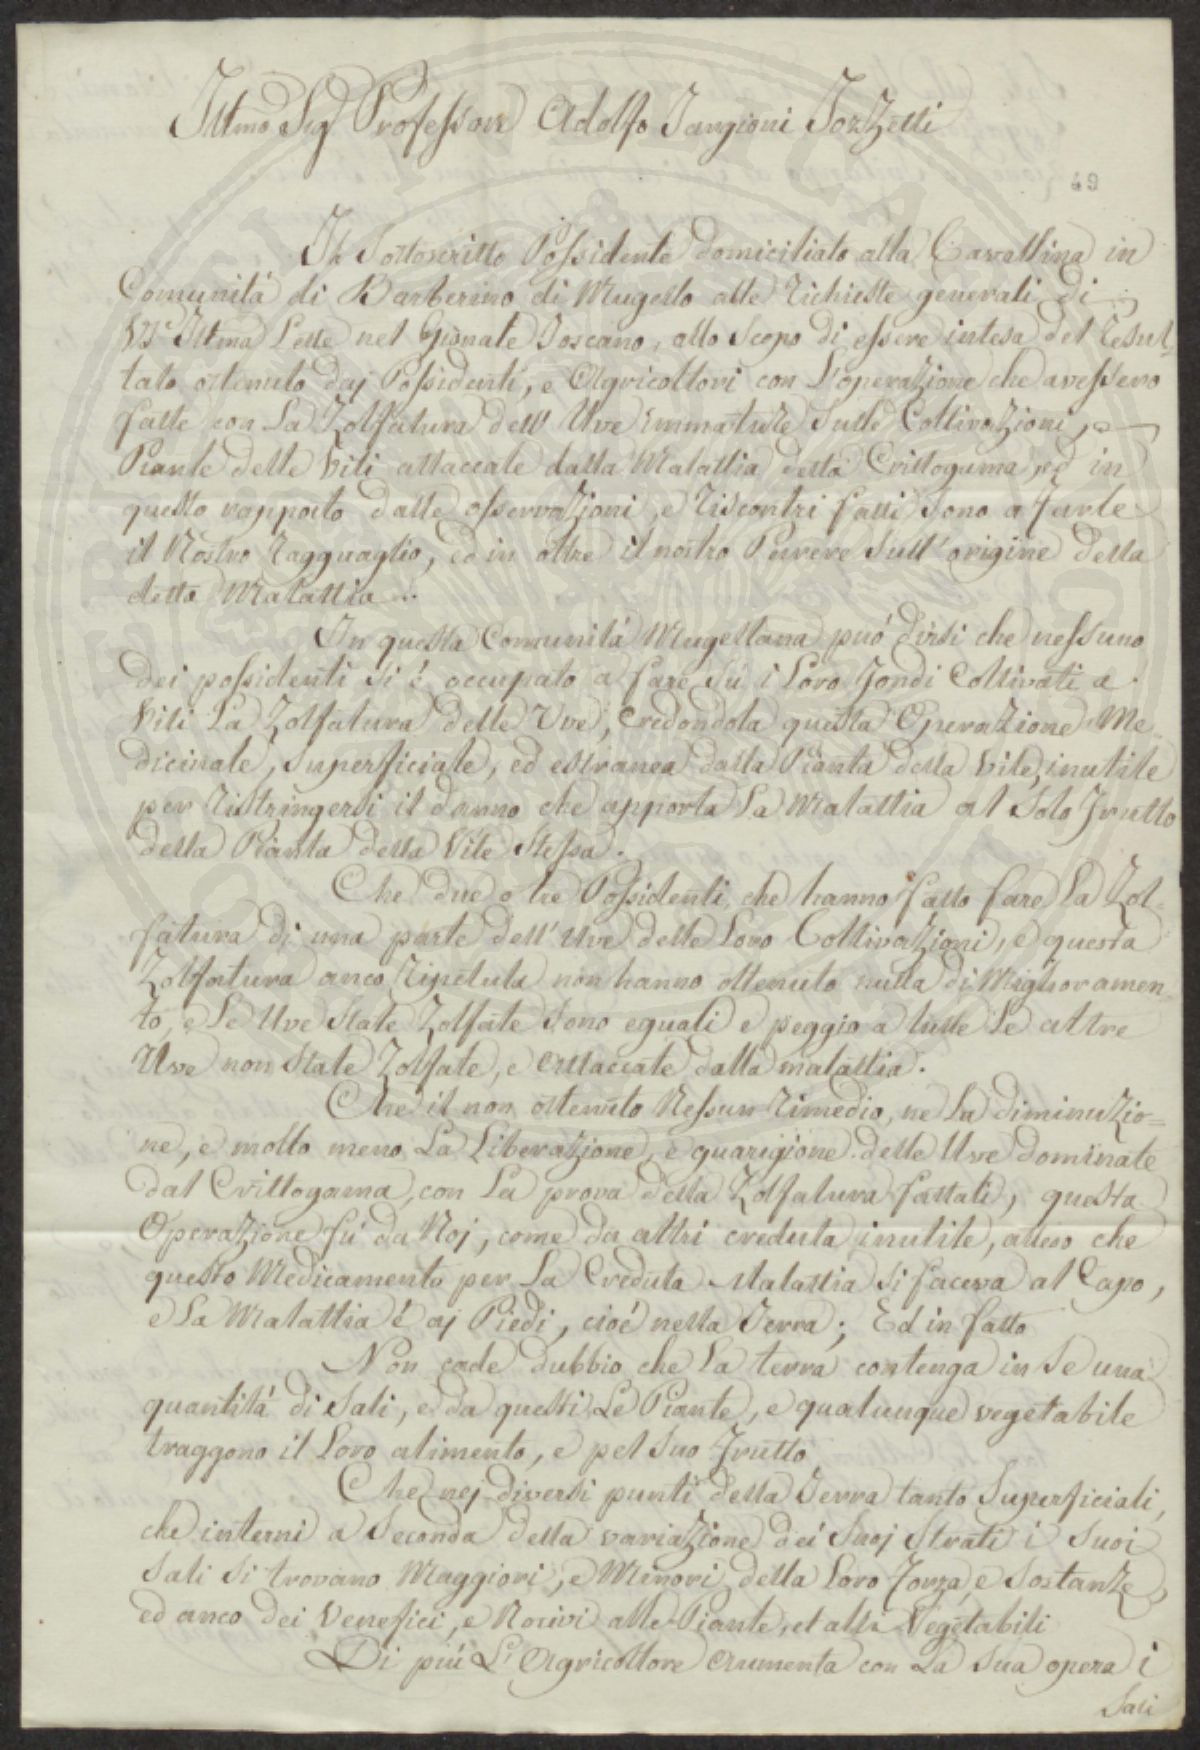 Illmo Sig Professore Adolfo Targioni Tozzetti
49
Il Sottoscritto Possidente domiciliato alla Cavallina in
Comunitá di Barberino di Mugello alle richieste generali di
VS Illma Lette nel Gionale Toscano, allo Scopo di essere intesa del Resul-
tato ottenuto daj Possidenti, e Agricoltori con L'operazione che avessero
fatte con La Zolfatura dell' Uve immature Sulle Coltivazioni,
Piante delle Viti attaccate dalla Malattia detta Crittogama, ed in
questo rapporto dalle osservazioni, e riscontri fatti Sono a farle
il Nostro Ragguaglio, ed in oltre il nostro Parere Sull' origine della
detta Malattia..
In questa Comunitá Mugellana puó dirsi che nessuno
dei possidenti Si é occupato a fare Sú i Loro Fondi Coltivati a
Viti La Zolfatura delle Uve, credondola questa Operazione Me-
dicinale, Superficiale, ed estranea dalla Pianta della Vite, inutile
per ristringersi il danno che apporta La Malattia al Solo Frutto
della Pianta della Vite Stessa.
Che due o tre Possidenti, che hanno fatto fare La Zol-
fatura di una parte dell' Uve delle Loro Coltivazioni, e questa
Zolfatura anco ripetuta non hanno ottenuto nulla di Miglioramen-
to, e Le Uve State Zolfate Sono eguali e peggio a tutte Le altre
Uve non State Zolfate, e Attaccate dalla malattia.
Che il non ottenuto Nessun rimedio, ne La diminuzio=
ne, e molto meno La Liberazione, e guarigione delle Uve dominate
dal Crittogama, con La prova della Zolfatura fattali, questa
Operazione fú da Noj, come da altri creduta inutile, atteso che
questo Medicamento per La Creduta Malattia Si faceva al Capo,
e La Malattia é aj Piedi, cioé nella Terra; Ed in fatto
Non cade dubbio che La terra contenga in Se una
quantitá di Sali, e da questi Le Piante, e qualunque vegetabile
traggono il Loro alimento, e pel Suo Frutto
Che nej diversi punti della Terra tanto Superficiali,
che interni a Seconda della variazione dei Suoj Strati i Suoi
Sali Si trovano Maggiori, e Minori della Loro Forza, e Sostanze,
ed anco dei Venefici, e Nocivi alle Piante, et altri Vegetabili
Di piú L' Agricoltore Aumenta con La Sua opera i
Sali